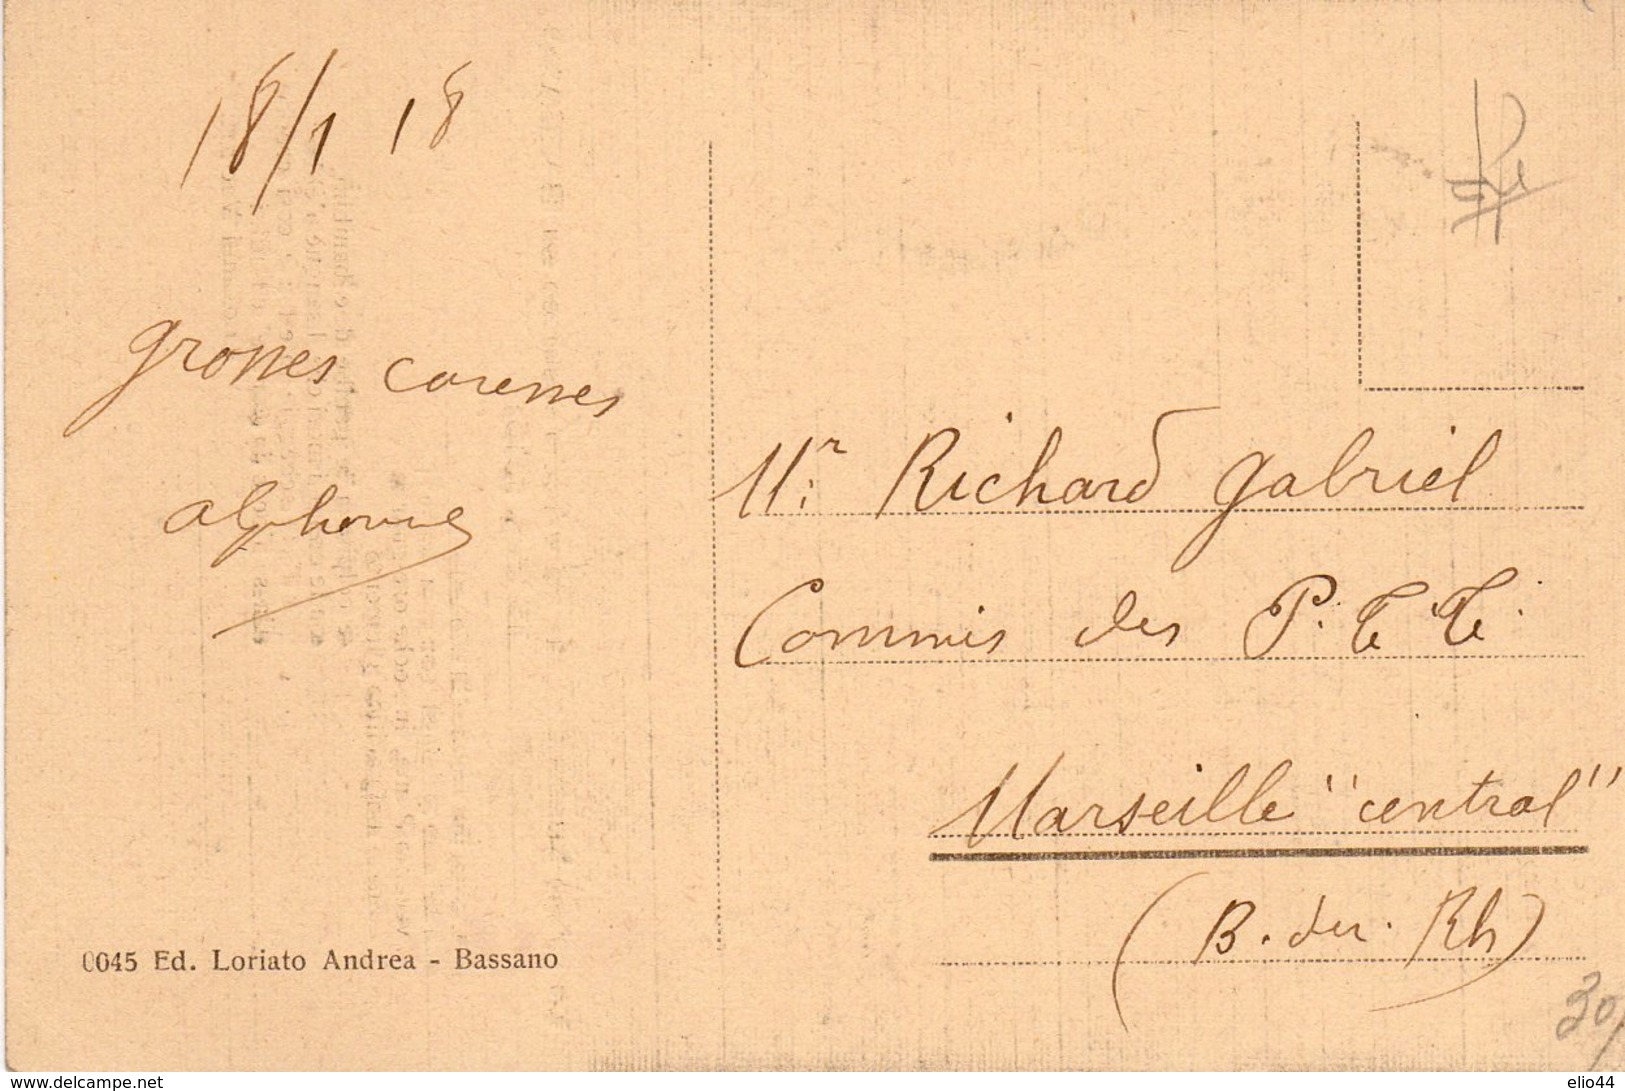 18/1 18
grosses caresses
alphonse
Mr Richard Gabriel
Commis des P.T.T.
Marseille "central"
(B. du. Rh)
0045 Ed. Loriato Andrea - Bassano
30
www.delcampe.net
elio44